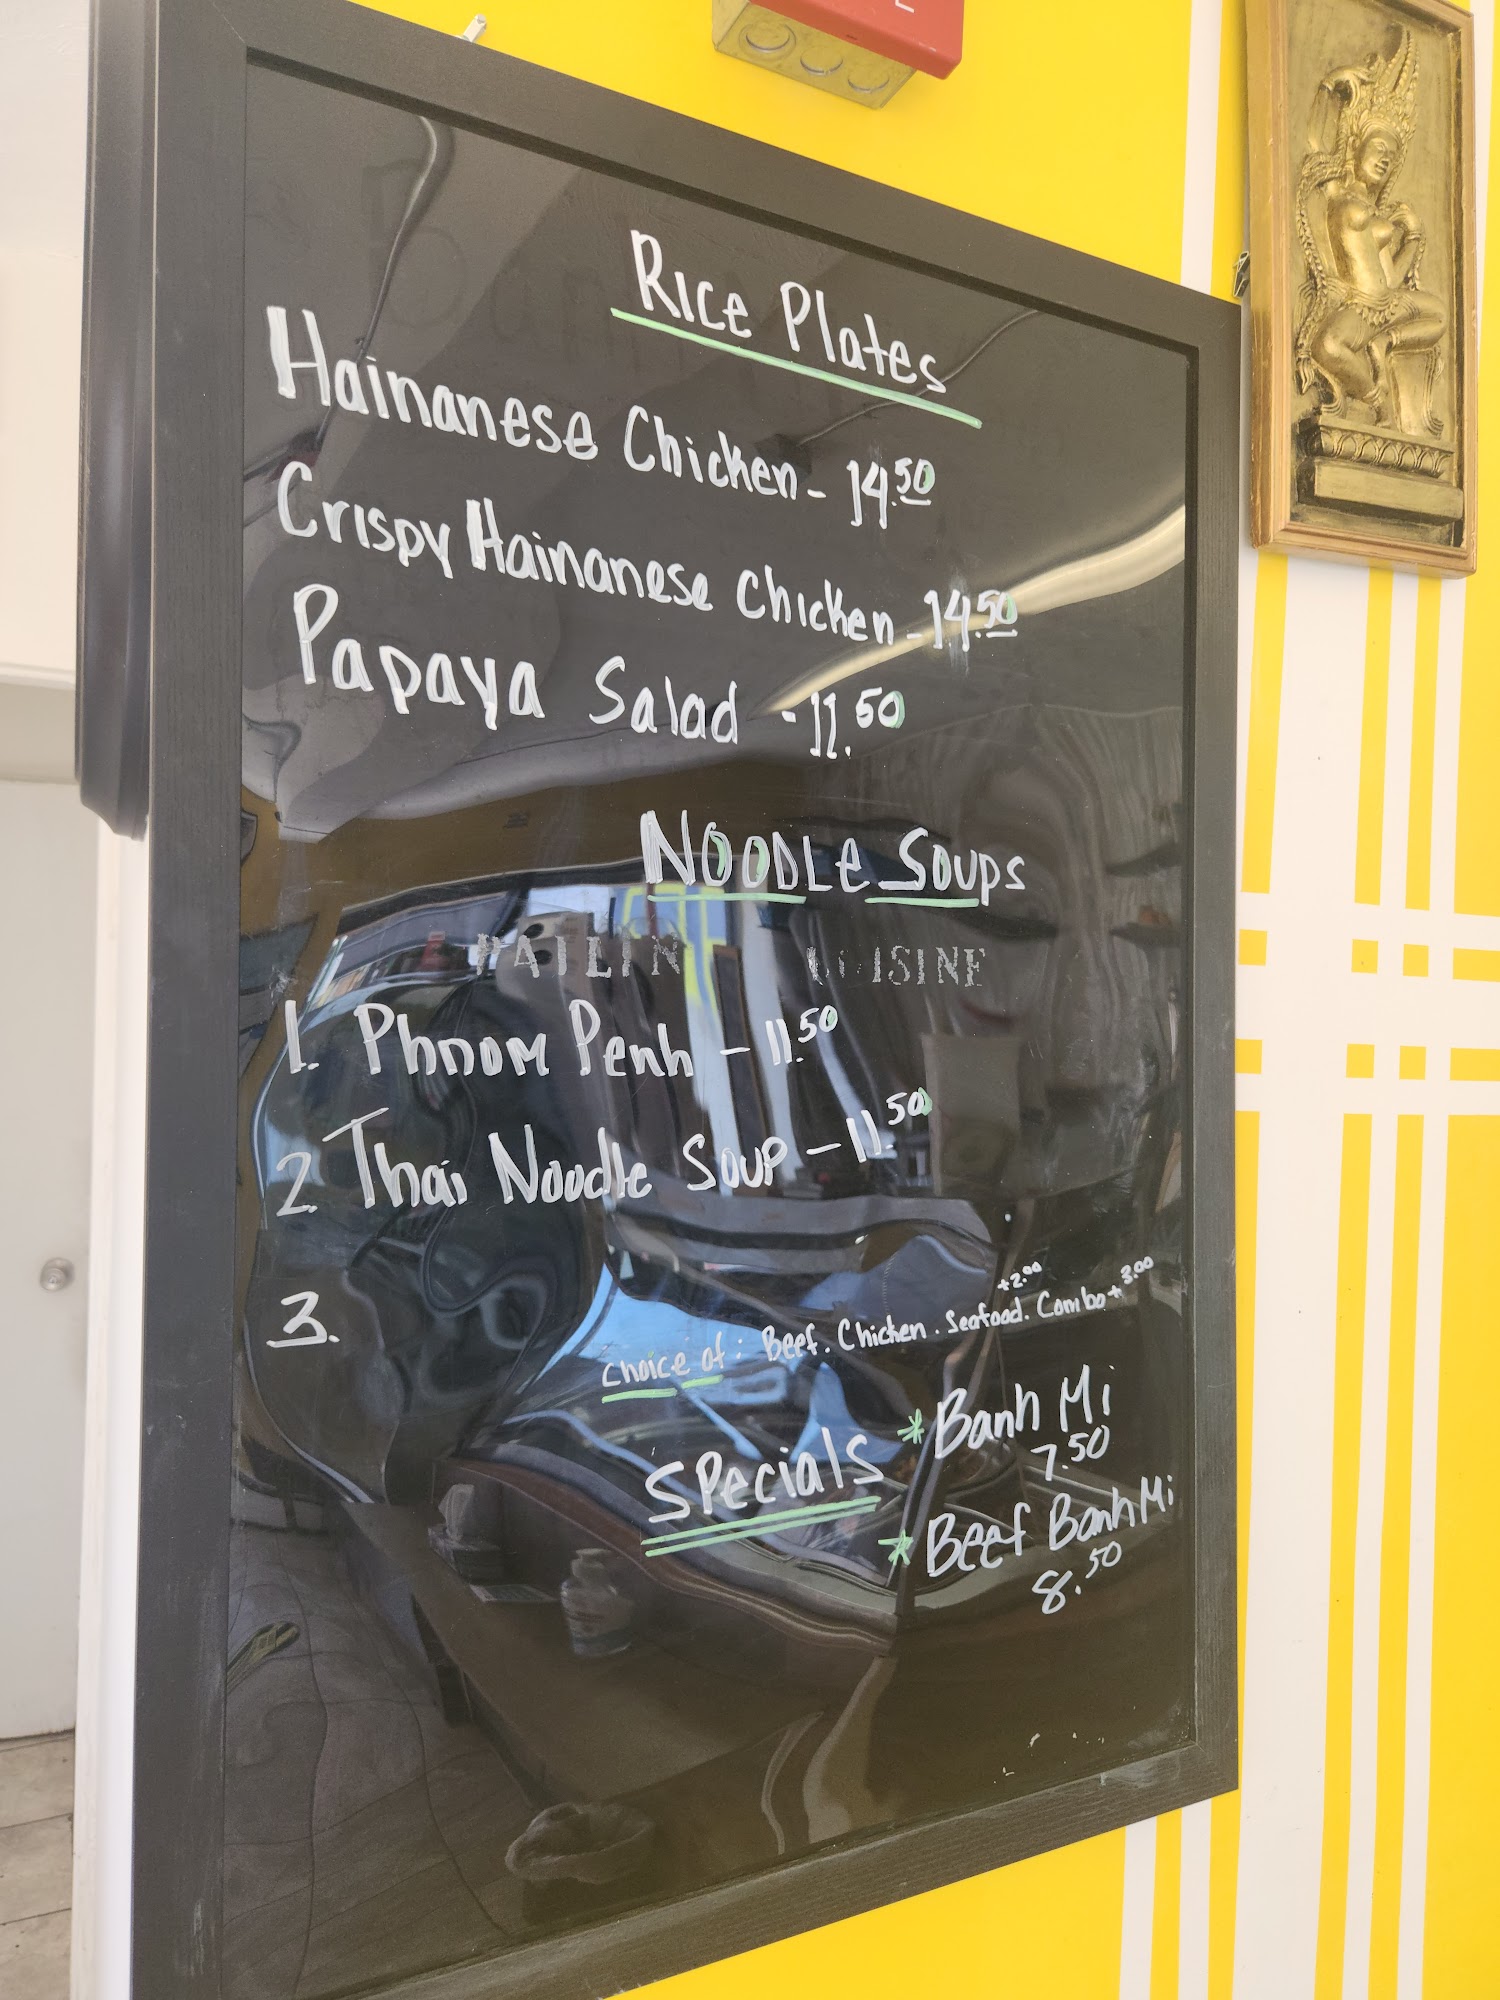 Rice Plates
Hainanese Chicken - 14.50
Crispy Hainanese Chicken - 14.50
Papaya Salad - 11.50
Noodle Soups
CUISINE
1. Phnom Penh - 11.50
2. Thai Noodle Soup - 11.50
3.
+2.00
Choice of: Beef. Chicken. Seafood. Combo + 3.00
Specials
* Banh Mi
7.50
* Beef Banh Mi
8.50